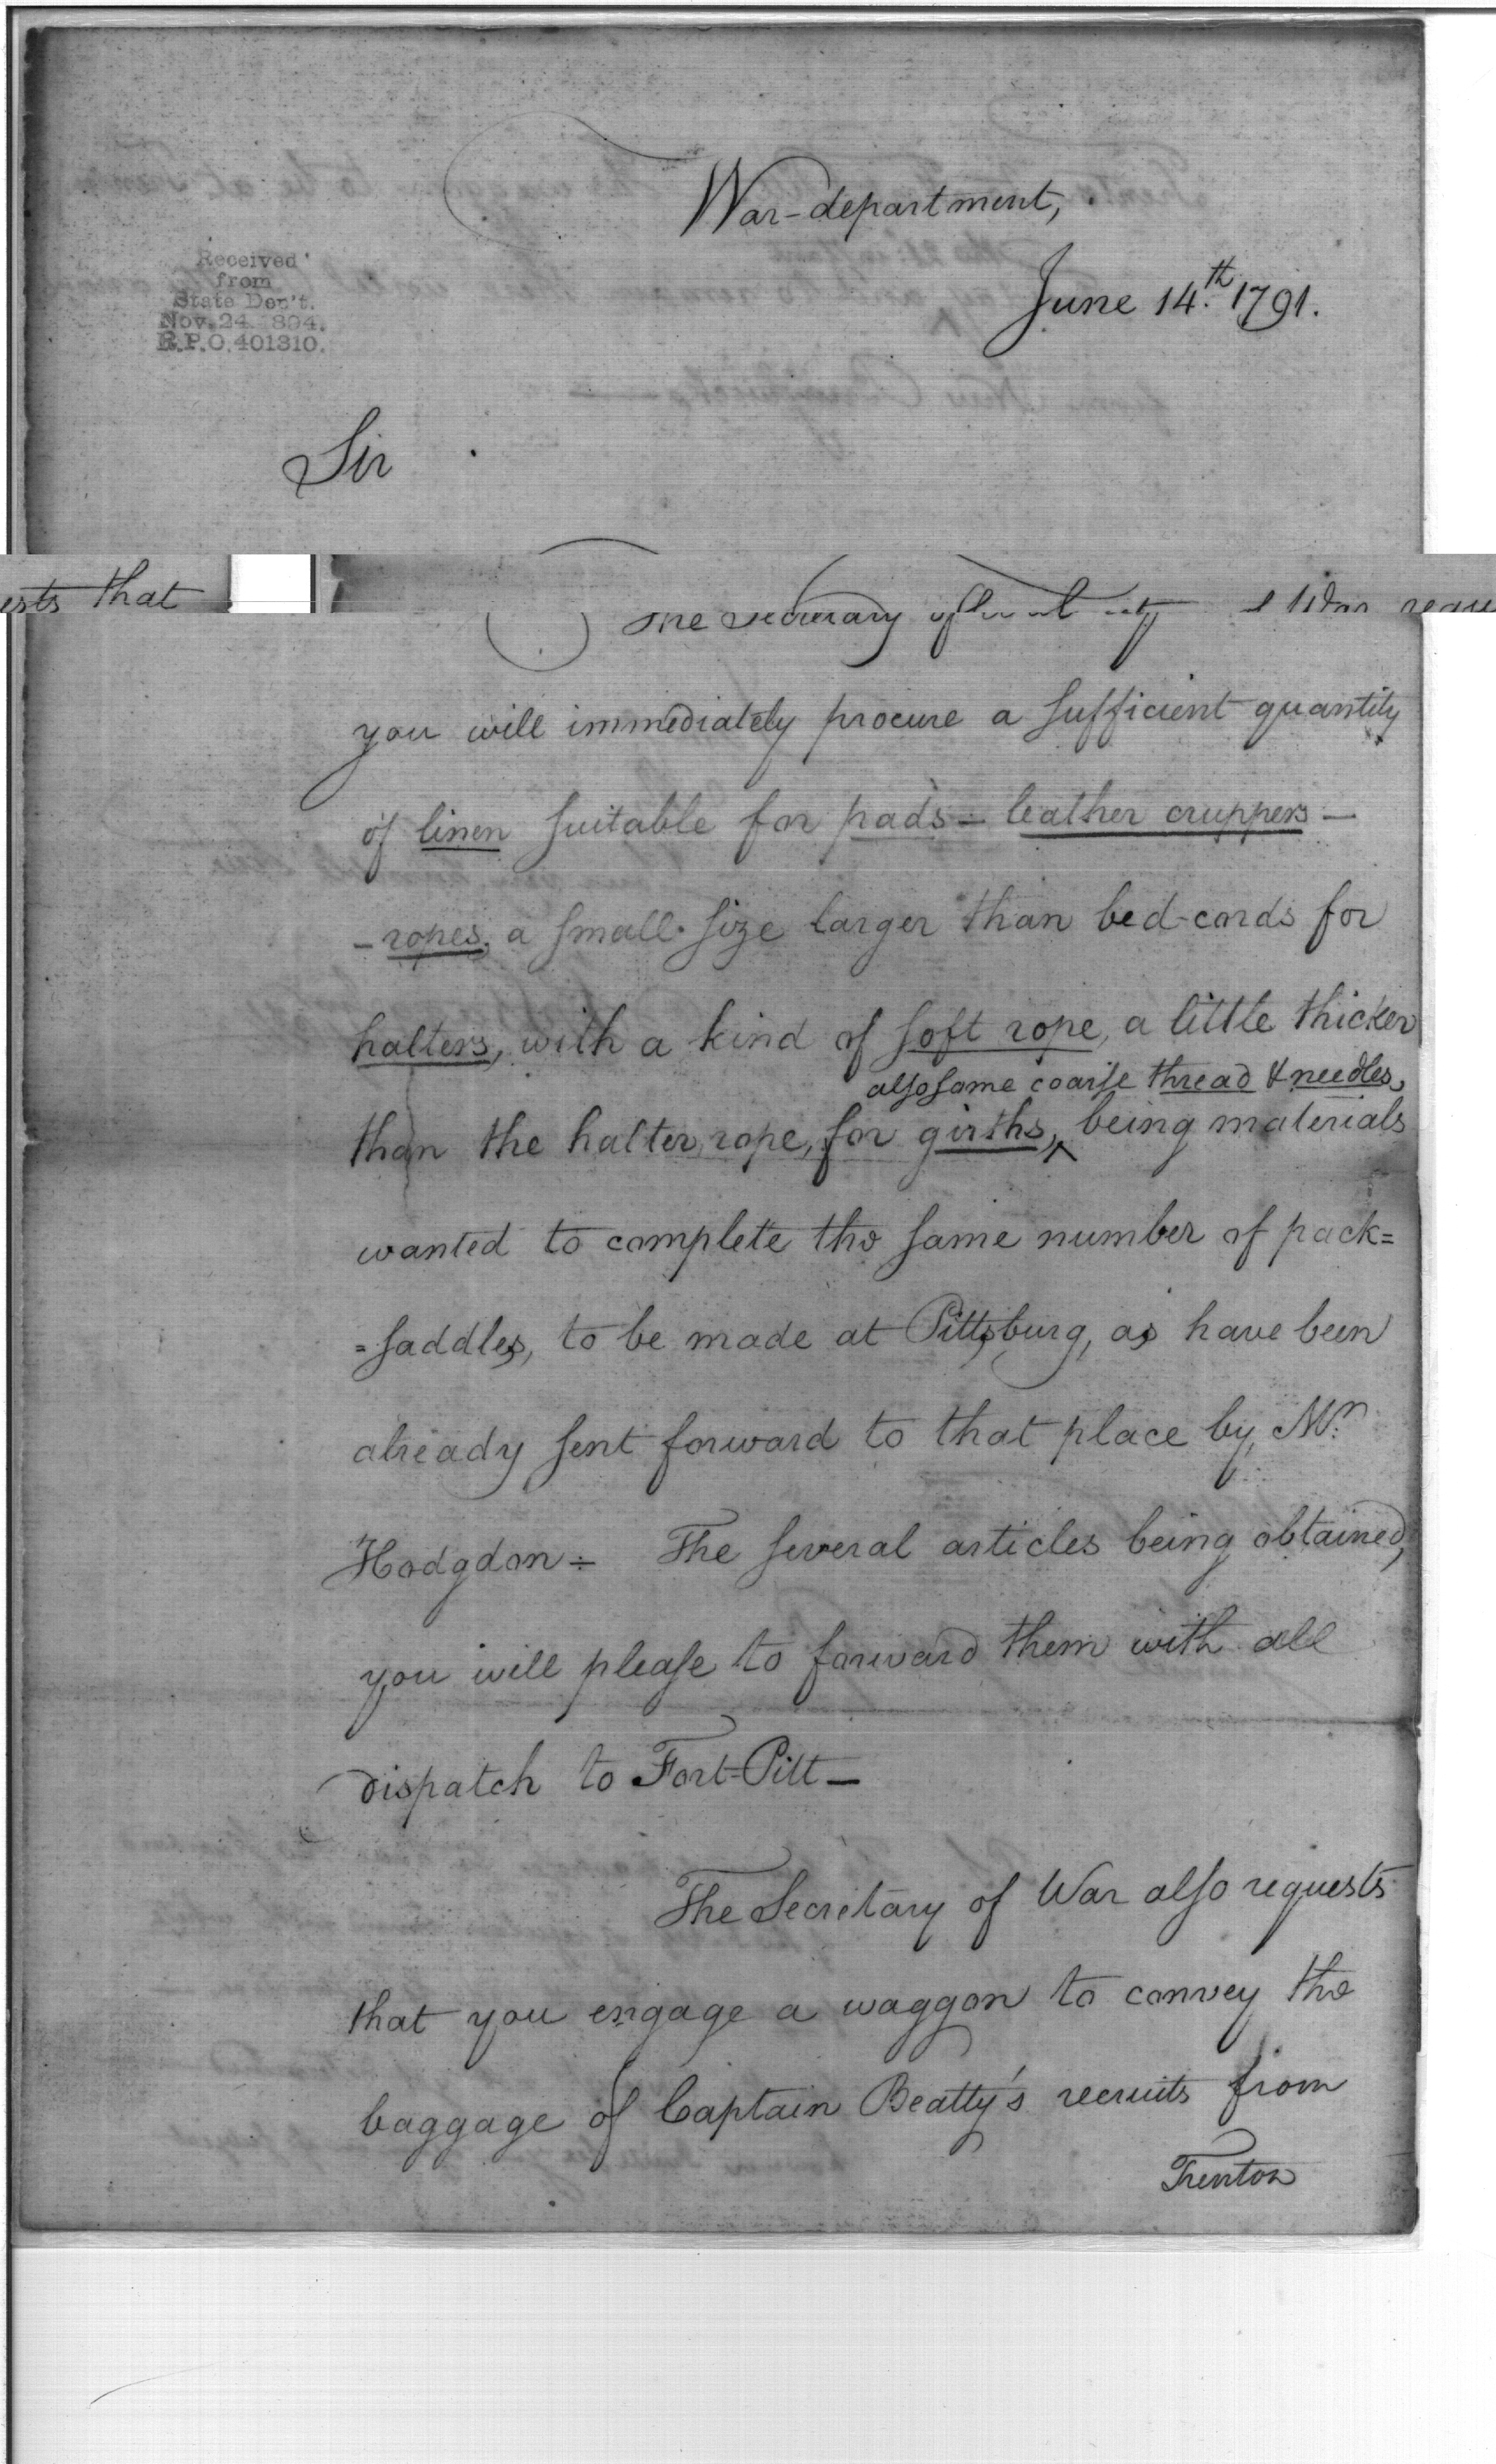 War-department,
June 14.th 1791.
Received
from
State Dep't.
Nov. 24 894.
R.P.O. 401310.
Sir
The Secretary of War requests that
you will immediately procure a sufficient quantity
of linen suitable for pads - leather cruppers -
- ropes, a small size larger than bed-cords for
halters, with a kind of soft rope, a little thicker
also some coarse thread & needles,
than the halter rope, for girths, ^ being materials
wanted to complete the same number of pack=
=saddles, to be made at Pittsburg, as have been
already sent forward to that place by Mr.
Hodgdon - The several articles being obtained,
you will please to forward them with all
dispatch to Fort=Pitt -
The Secretary of War also requests
that you engage a waggon to convey the
baggage of Captain Beatty's recruits from
Trenton